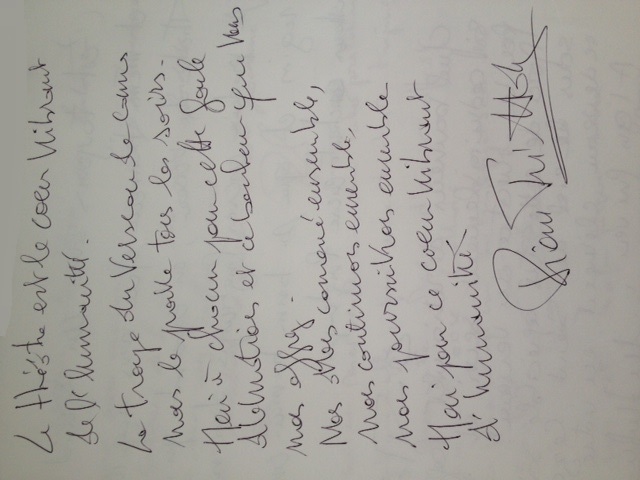 Le théâtre est le cœur vibrant
de l'humanité.
La troupe du Verseau de Cans
nous le prouve tous les soirs.
Merci à chacun pour cette foule
d'émotions et ce bonheur que vous
nous offrez.
Nous commencé ensemble,
nous continuons ensemble,
nous poursuivons ensemble
Merci pour ce cœur vibrant
d'humanité